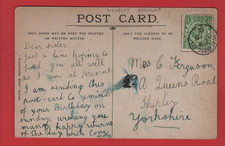 POST CARD.
THIS SPACE MAY BE USED FOR PRINTED
OR WRITTEN MATTER
THE ADDRESS TO BE
WRITTEN HERE.
Dear Sister
Just a line hoping to
find you all well
as I am at present
I am sending this
post-card to remind
of your Birthday on
Sunday, wishing you
many happy returns
of the day with love
Mrs C Ferguson
Queens Road
Shipley
Yorkshire